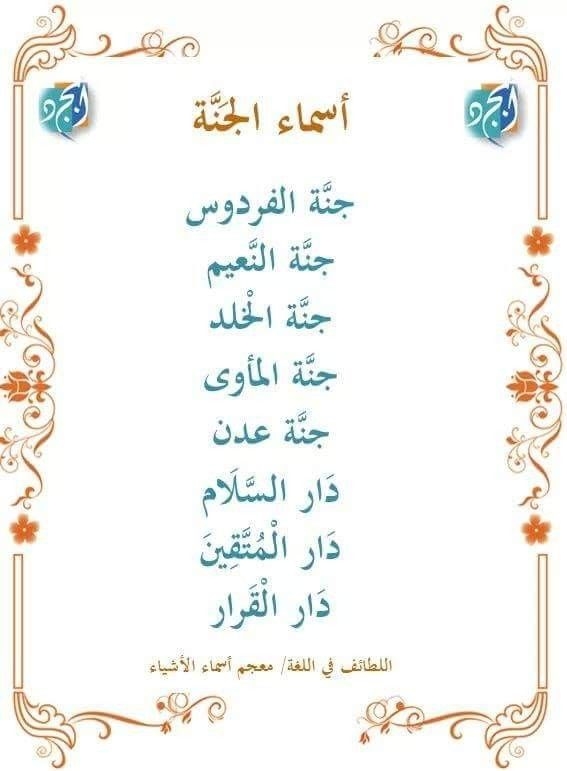 أسماء الجَنَّة
جنَّة الفردوس
جنَّة النَّعيم
جنَّة الْخلد
جنَّة المأوى
جنَّة عدن
دَار السَّلَام
دَار الْمُتَّقِينَ
دَار الْقَرار
اللطائف في اللغة/ معجم أسماء الأشياء